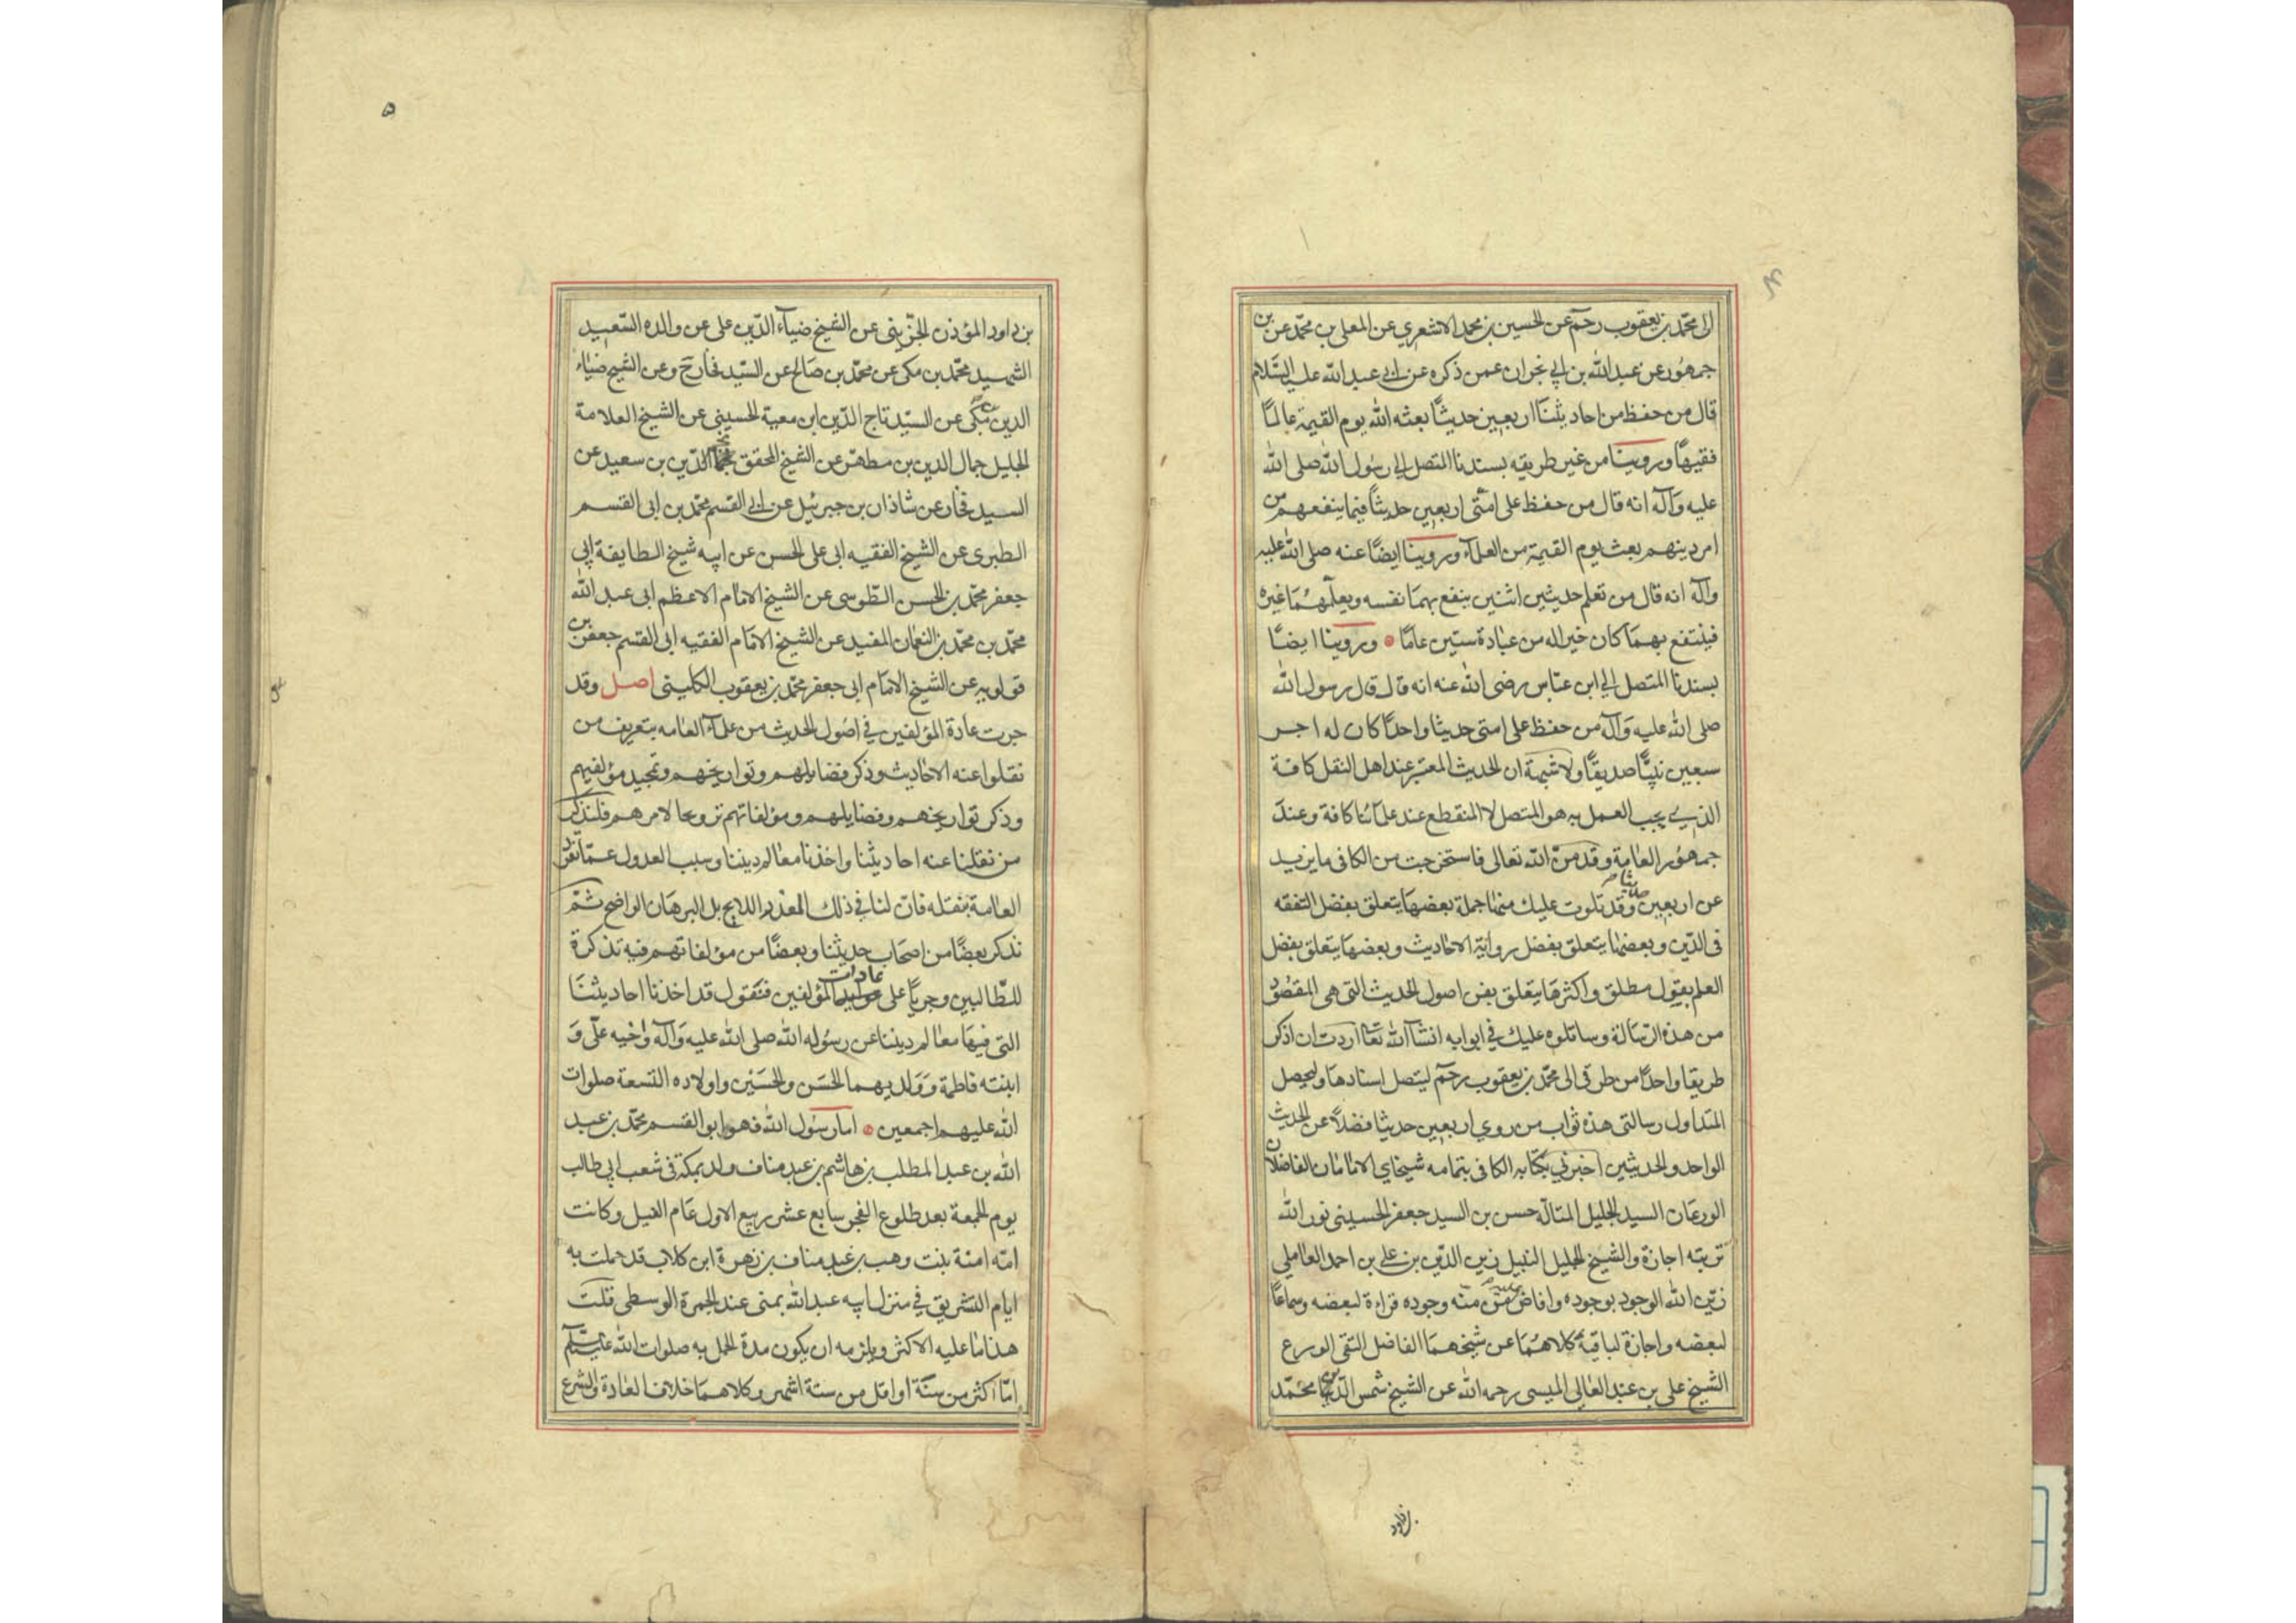 الى محمد بن يعقوب رحمه عن الحسين بن محمد الاشعري عن المعلى بن محمد عن بن
جمهور عن عبد الله بن ابي نجران عمن ذكره عن ابي عبد الله عليه السلام
قال من حفظ من احاديثنا اربعين حديثًا بعثه الله يوم القيمة عالمًا
فقيهًا وروينا من غير طريقه بسندنا المتصل الى رسول الله صلى الله
عليه وآله انه قال من حفظ على امتى اربعين حديثًا فيما ينفعهم من
امر دينهم بعث يوم القيمة من العلمآء وروينا ايضًا عنه صلى الله عليه
وآله انه قال من تعلم حديثين اثنين ينفع بهما نفسه ويعلّمهما غيره
فينتفع بهما كان خير اله من عبادة ستين عامًا وروينا ايضًا
بسندنا المتصل الى ابن عباس رضى الله عنه انه قال قال رسول الله
صلى الله عليه وآله من حفظ على امتى حديثا واحدًا كان له اجر
سبعين نبيًّا صديقًا ولا شبهة ان الحديث المعتبر عند اهل النقل كافة
الذي يجب العمل به هو المتصل لا المنقطع عند علمآئنا كافة وعند
جمهور العامة وقد منّ الله تعالى فاستخرجت من الكافى ما يزيد
عن اربعين حديثا وقد تلوت عليك منها جملة بعضها يتعلق بفضل التفقه
فى الدّين وبعضها يتعلق بفضل رواية الاحاديث وبعضها يتعلق بفضل
العلم بقول مطلق واكثرها يتعلق بفن اصول الحديث التى هى المقصود
من هذه الرسالة وساتلوه عليك في ابوابه انشآ الله تعا اردت ان اذكر
طريقا واحدًا من طرقى الى محمّد بن يعقوب رحمه ليتصل اسنادها وليحصل
المتداول رسالتى هذه ثواب من روي اربعين حديثا فضلًا عن الحديث
الواحد والحديثين اخبرني بكتابه الكافى بتمامه شيخاي الامامان الفاضلان
الورعان السيد الجليل المتالّه حسن بن السيد جعفر الحسينى نور الله
تربته اجازة والشيخ الجليل النبيل زين الدّين بن علي بن احمد العاملي
زيّن الله الوجود بوجوده وافاض عليه من منّه وجوده قراءة لبعضه وسماعًا
لبعضه واجازة لباقيه كلاهما عن شيخهما الفاضل التقى الورع
الشيخ على بن عبد العالى الميسى رحمه الله عن الشيخ شمس الدّين محمّد
بن داود
۵
بن داود المؤذن الجزّينى عن الشيخ ضيآء الدّين على عن والده السّعيد
الشهيد محمّد بن مكى عن محمّد بن صالح عن السّيد فخار ح وعن الشيخ ضياء
الدين بن مكّى عن السيّد تاج الدّين ابن معية الحسينى عن الشيخ العلامة
الجليل جمال الدين بن مطهّر عن الشيخ المحقق نجم الدّين بن سعيد عن
السيد فخار عن شاذان بن جبرئيل عن ابي القسم محمّد بن ابى القسم
الطبرى عن الشيخ الفقيه ابى على الحسن عن ابيه شيخ الطايفة ابي
جعفر محمّد بن الحسن الطّوسى عن الشيخ الامام الاعظم ابى عبد الله
محمّد بن محمّد بن النعمان المفيد عن الشيخ الامام الفقيه ابى القسم جعفر بن
قولويه عن الشيخ الامام ابى جعفر محمّد بن يعقوب الكلينى اصل وقد
جرت عادة المؤلفين في اصول الحديث من علمآء العامه بتعريف من
نقلوا عنه الاحاديث وذكر فضايلهم وتواريخهم وتمجيد مؤلفيهم
وذكر تواريخهم وفضايلهم ومؤلفاتهم ترويجا لامرهم فلنذكر
من نقلنا عنه احاديثنا واخذنا معالم ديننا وسبب العدول عمّا تفرّد
العامة بنقله فانّ لنا في ذلك العذر اللايح بل البرهان الواضح ثمّ
نذكر بعضًا من اصحاب حديثنا وبعضًا من مؤلفاتهم فيه تذكرة
للطّالبين وجريًا على عادات المؤلفين فنقول قد اخذنا احاديثنا
التى فيها معالم ديننا عن رسوله الله صلى الله عليه وآله واخيه علىّ و
ابنته فاطمة وولديهما الحسن والحسين واولاده التسعة صلوات
الله عليهم اجمعين اما رسول الله فهو ابو القسم محمّد بن عبد
الله بن عبد المطلب بن هاشم بن عبد مناف ولد بمكة فى شعب ابي طالب
يوم الجمعة بعد طلوع الفجر سابع عشر ربيع الاول عام الفيل وكانت
امّه امنة بنت وهب بن عبد مناف بن زهرة ابن كلاب قد حملت به
ايام التشريق في منزل ابيه عبد الله بمنى عند الجمرة الوسطى قلت
هذا ما عليه الاكثر ويلزمه ان يكون مدة الحمل به صلوات الله عليه وآله
امّا اكثر من سنة او اقل من ستة اشهر وكلاهما خلاف العادة والشرع